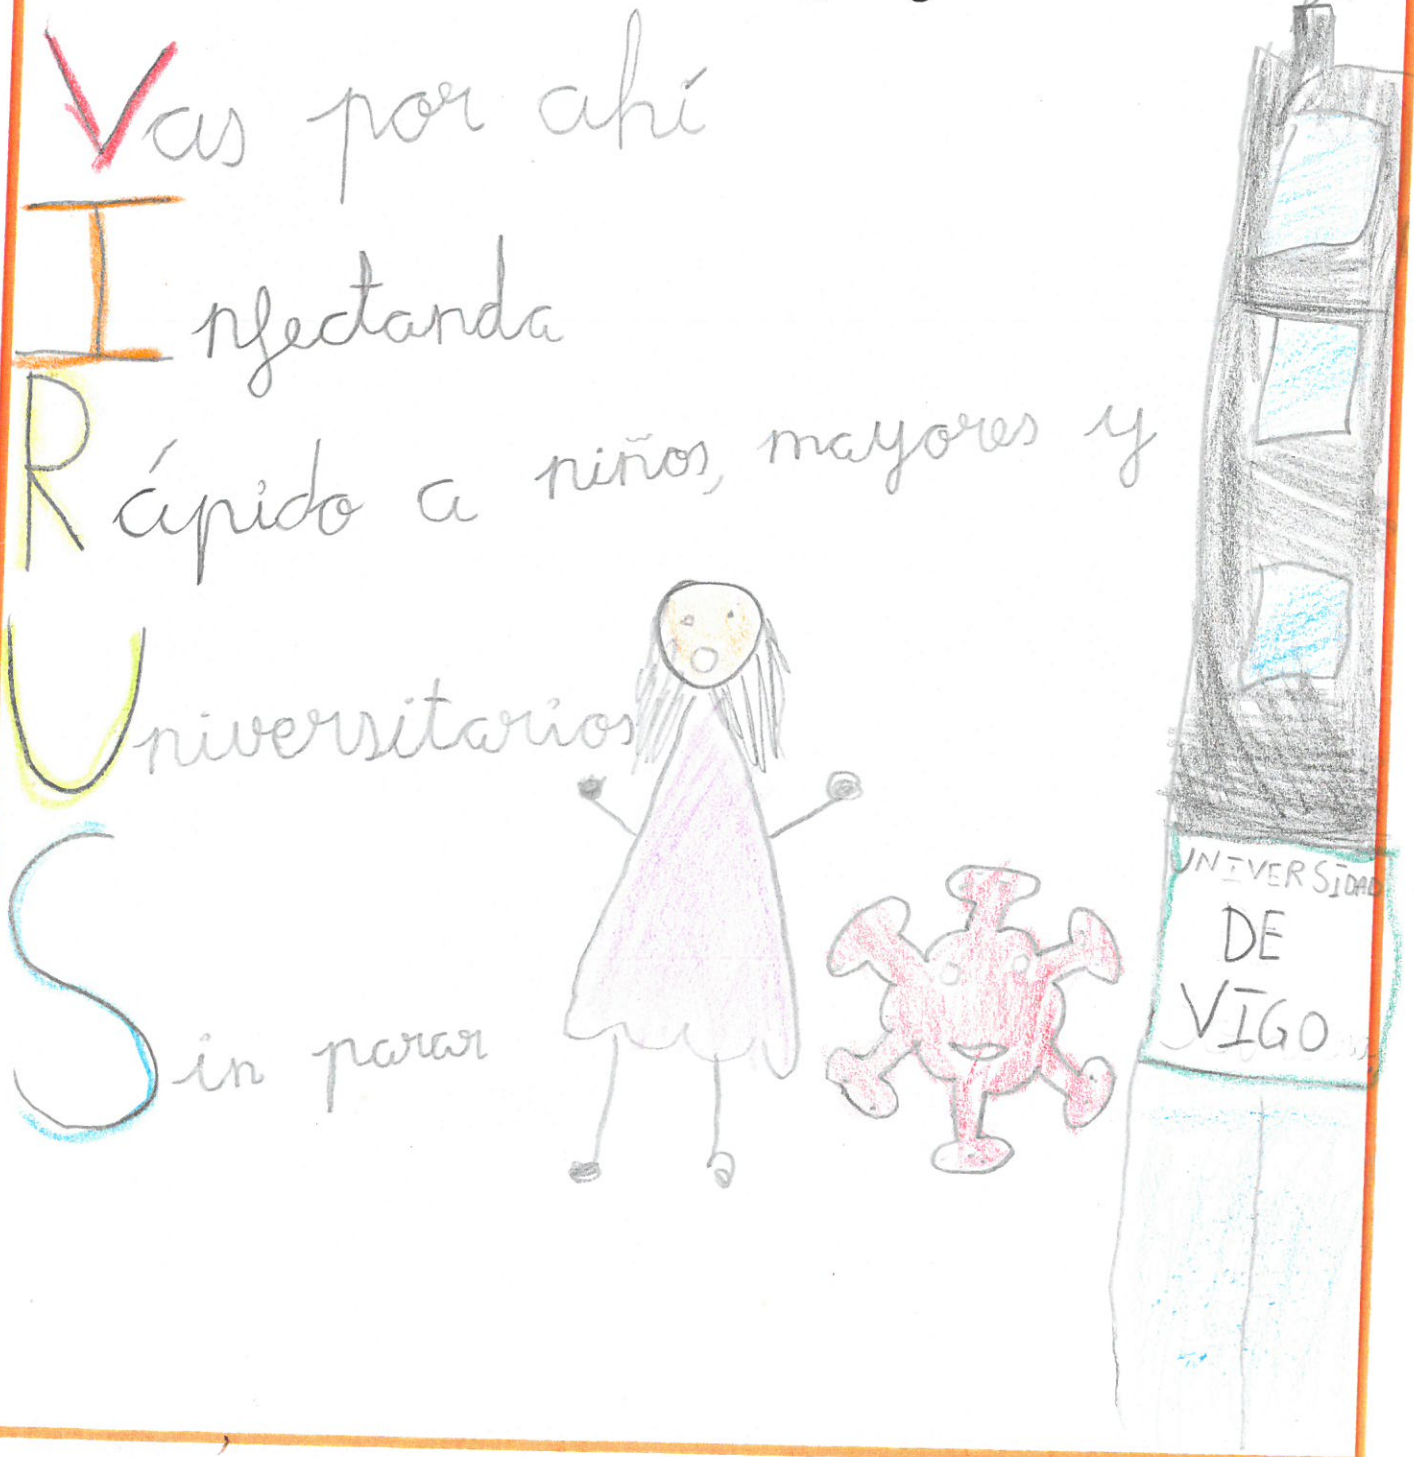 Vas por ahí
Infectanda
Rápido a niños, mayores y
Universitarios
Sin parar
UNIVERSIDAD
DE
VIGO